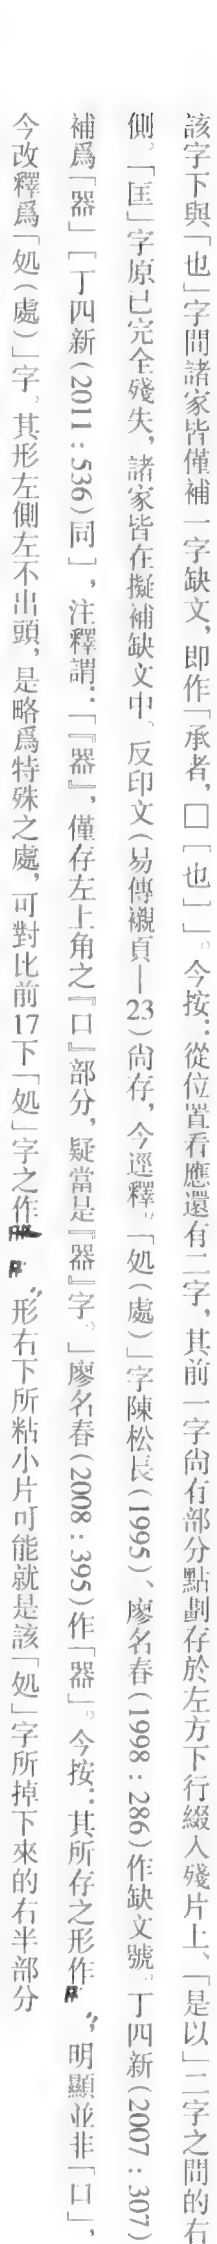 該字下與「也」字間諸家皆僅補一字缺文，即作「承者，□［也］」。今按：從位置看應還有二字，其前一字尚有部分點劃存於左方下行綴入殘片上、「是以」二字之間的右
側。「匡」字原已完全殘失，諸家皆在擬補缺文中。反印文（易傳襯頁—23）尚存，今逕釋。「処（處）」字陳松長（1995）、廖名春（1998：286）作缺文號。丁四新（2007：307）
補爲「器」［丁四新（2011：536）同］，注釋謂：「『器』，僅存左上角之『口』部分，疑當是『器』字。」廖名春（2008：395）作「器」。今按：其所存之形作，明顯並非「口」，
今改釋爲「処（處）」字。其形左側左不出頭，是略爲特殊之處，可對比前17下「処」字之作，形右下所粘小片可能就是該「処」字所掉下來的右半部分